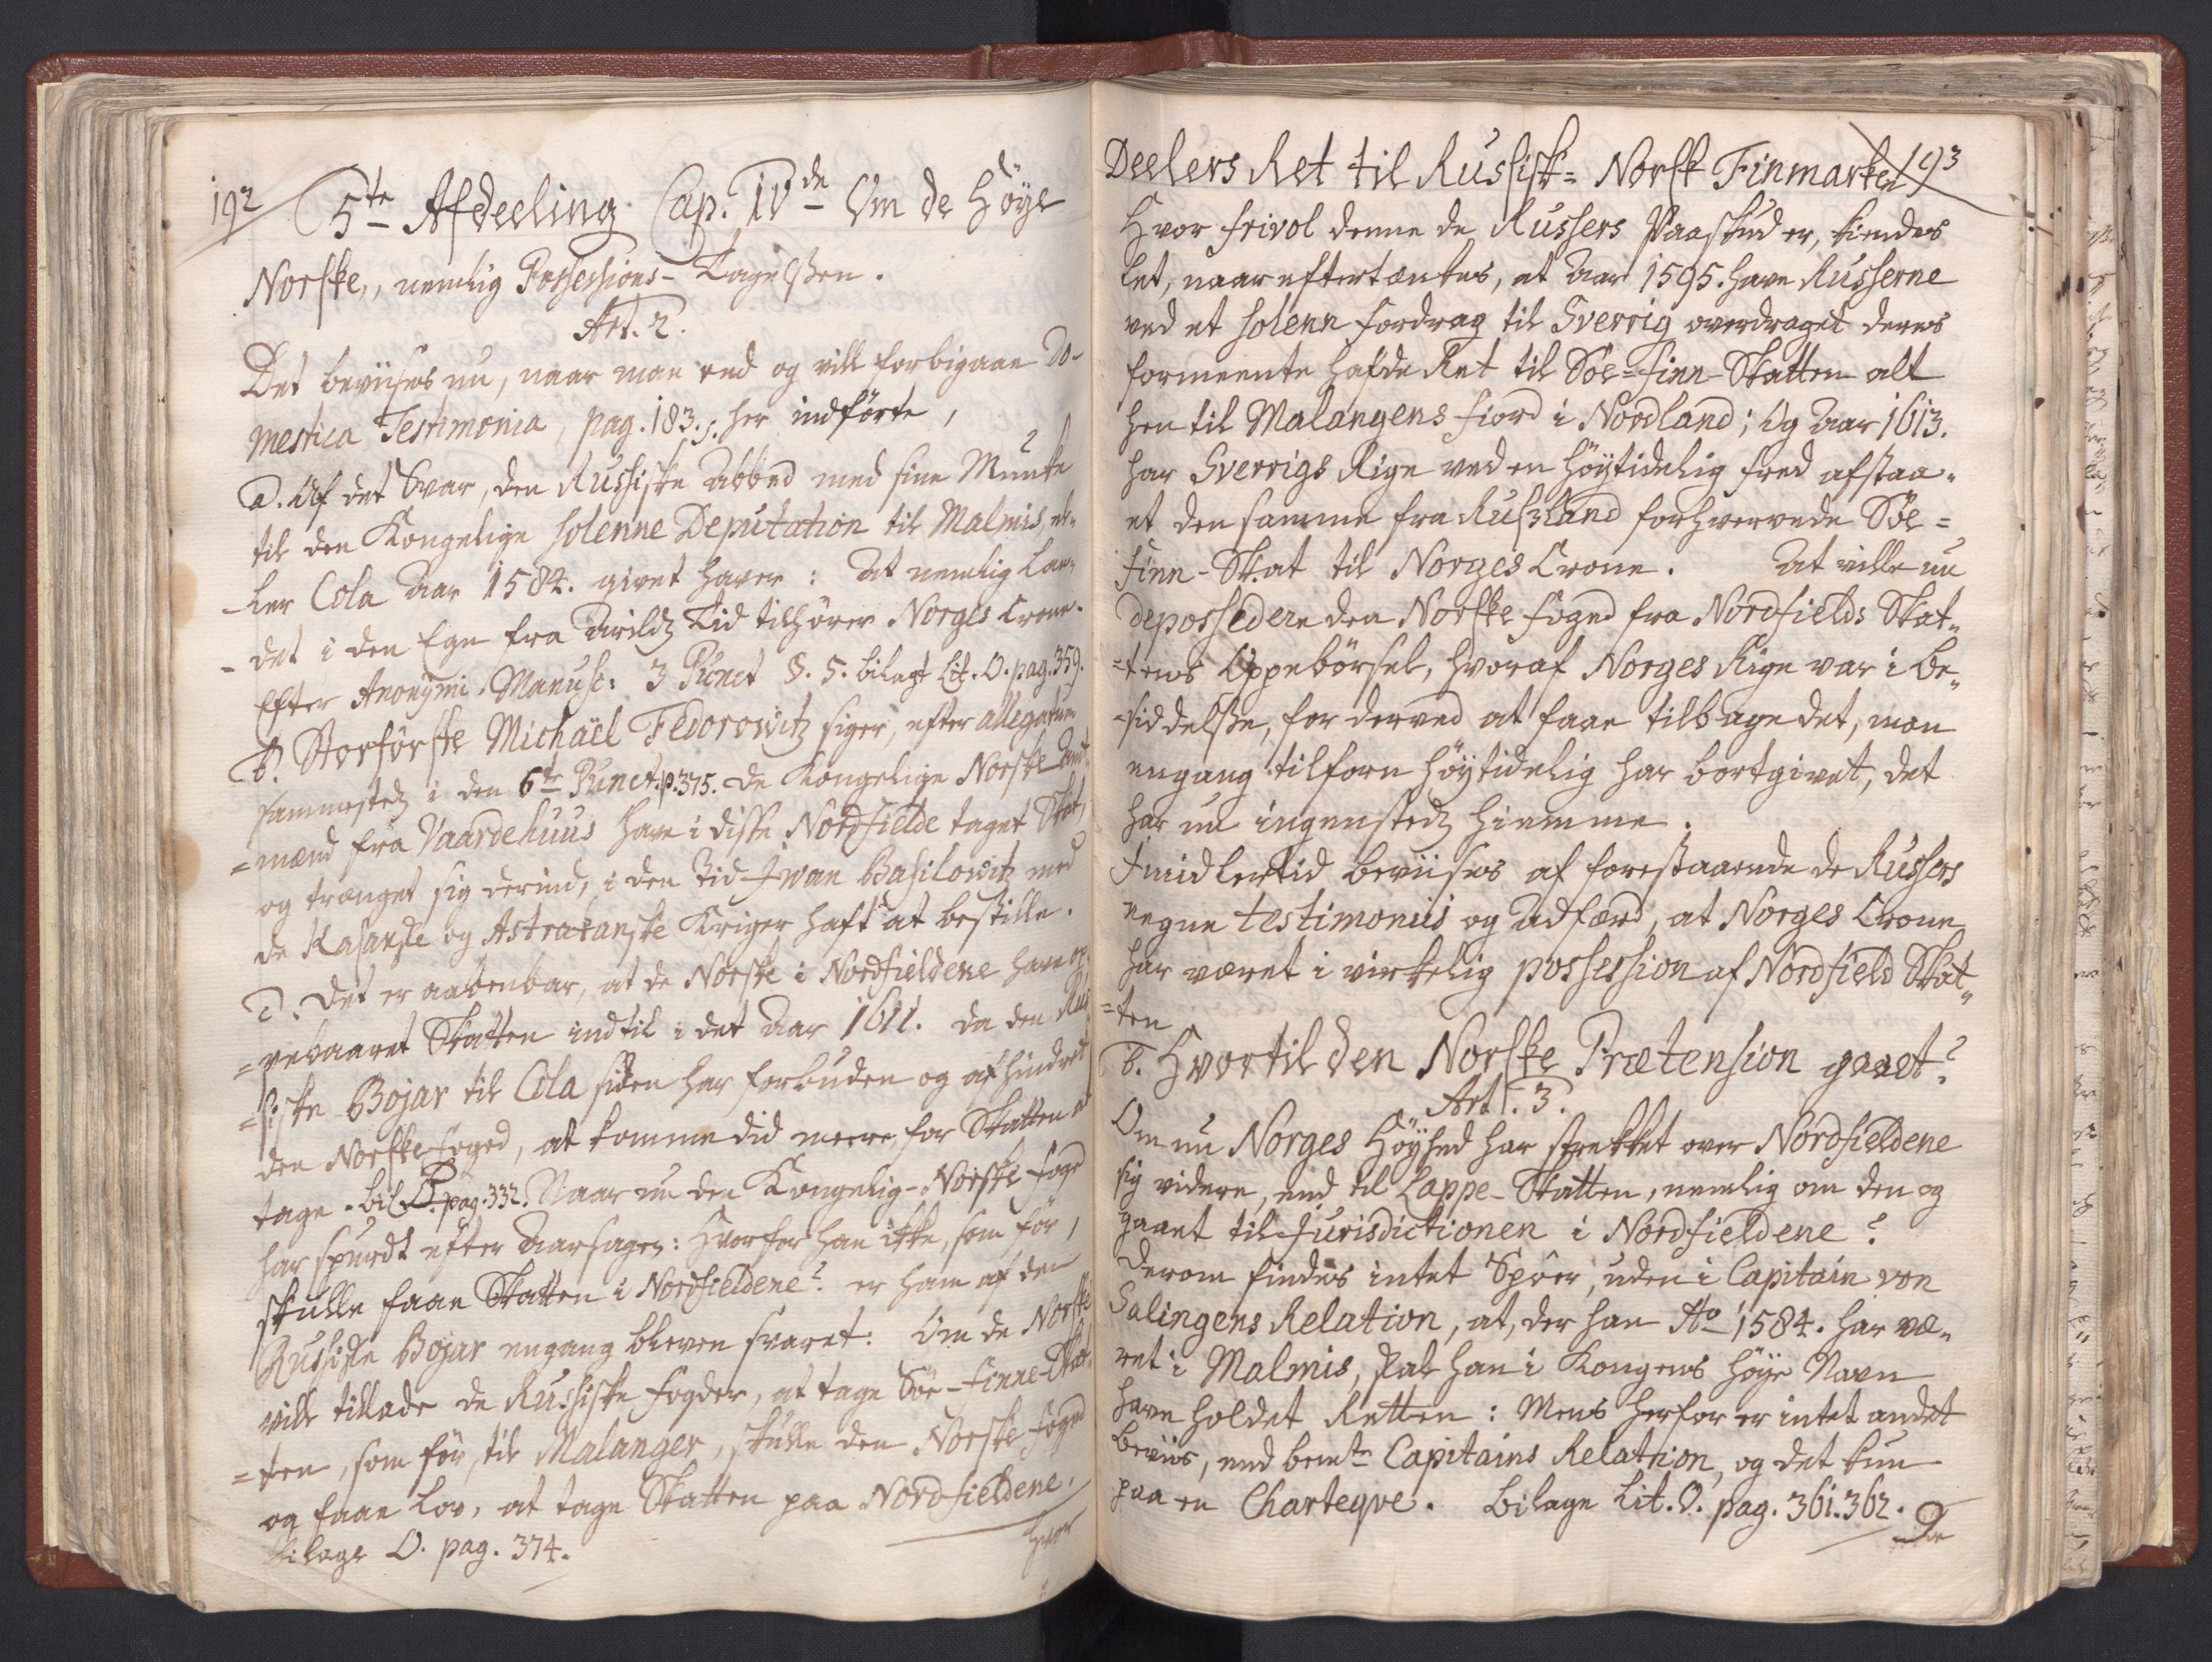 192
5te Afdeeling Cap. IVde Om de Höye
Norske, nemlig Possessions-Tagelßen.
Art. 2.
Det beviises nu, naar man end og vill forbigaae Do-
mestica Testimonia, pag. 183. her indförte,
a. Af det Svar, den Russiske Abbed med sine Munke
til den Kongelige solenne Deputation til Malmis, el-
-ler Cola Aar 1584. givet haver: At nemlig Lan-
-det i den Egn fra Arildz Tid tilhörer Norges Crone.
Efter Anonymi Manusc: 3 Punct §. 5. bilagt Lit. O. pag. 359.
b. Storförste Michaël Fedorowitz siger, efter allegatum
sammestedz i den 6te Punct. p. 375. de Kongelige Norske Amt-
=mænd fra Vaardehuus have i disse Nordfielde taget Skat,
og trænget sig derind, i den Tid Iwan Basilowitz med
de Kasanske og Astrakanske Kriger haft at bestille.
c. Det er aabenbar, at de Norske i Nordfieldene have op-
=pebaaret Skatten indtil i det Aar 1611. da den Rus-
=siske Bojar til Cola siden har forbuden og afhindret
den Norske Foged, at komme did meere, for Skatten at
tage. bil. pag. 332. Naar nu den Kongelig-Norske Foged
har spurdt efter Aarsagen: Hvorfor han ikke, som för,
skulle faae Skatten i Nordfieldene? er ham af den
Russiske Bojar engang bleven svaret: Om de Norske
ville tillade de Russiske Fogder, at tage Söe-Finne-Skat-
=ten, som för, til Malanger, skulle den Norske Foged
og faae Lov, at tage Skatten paa Nordfieldene.
bilage O. pag. 374.
Hvor
Deelers Ret til Russisk= Norsk Finmarken 193
Hvor frivol denne de Russers Paaskud er, kiendes
let, naar eftertænkes, at Aar 1595. have Russerne
ved et solenn Fordrag til Sverrig overdraget deres
formeente hafde Ret til Söe=Finn-Skatten alt
hen til Malangens Fiord i Nordland; Og Aar 1613.
har Sverrigs Rige ved en Höytidelig Fred afstaa-
et den samme fra Rusland forhvervede Söe=
Finn-Skat til Norges Crone. At ville nu
depossedere den Norske Foged fra Nordfields Skat-
=tens Oppebörsel, hvoraf Norges Rige var i be-
=siddelße, for derved at faae tilbage det, man
engang tilforn höytidelig har bortgivet, det
har nu ingenstedz hiemme.
Imidlertid beviises af forestaaende de Russers
egne testimoniis og Adfærd, at Norges Crone
har været i virkelig possession af Nordfield Skat-
=ten
b. Hvortil den Norske Prætension gaaet?
Art. 3.
Om nu Norges Höyhed har strekket over Nordfieldene
sig videre, end til Lappe-Skatten, nemlig om den og
gaaet til Jurisdictionen i Nordfieldene?
Derom findes intet Spöer, uden i Capitain von
Salingens Relation, at, der han Ao 1584. har væ-
ret i Malmis, skal han i Kongens höye Navn
have holdet Retten: Mens herfor er intet andet
beviis, end bemte Capitains Relation, og det kun
paa en Charteqve. bilage Lit. O. pag. 361. 362.
De